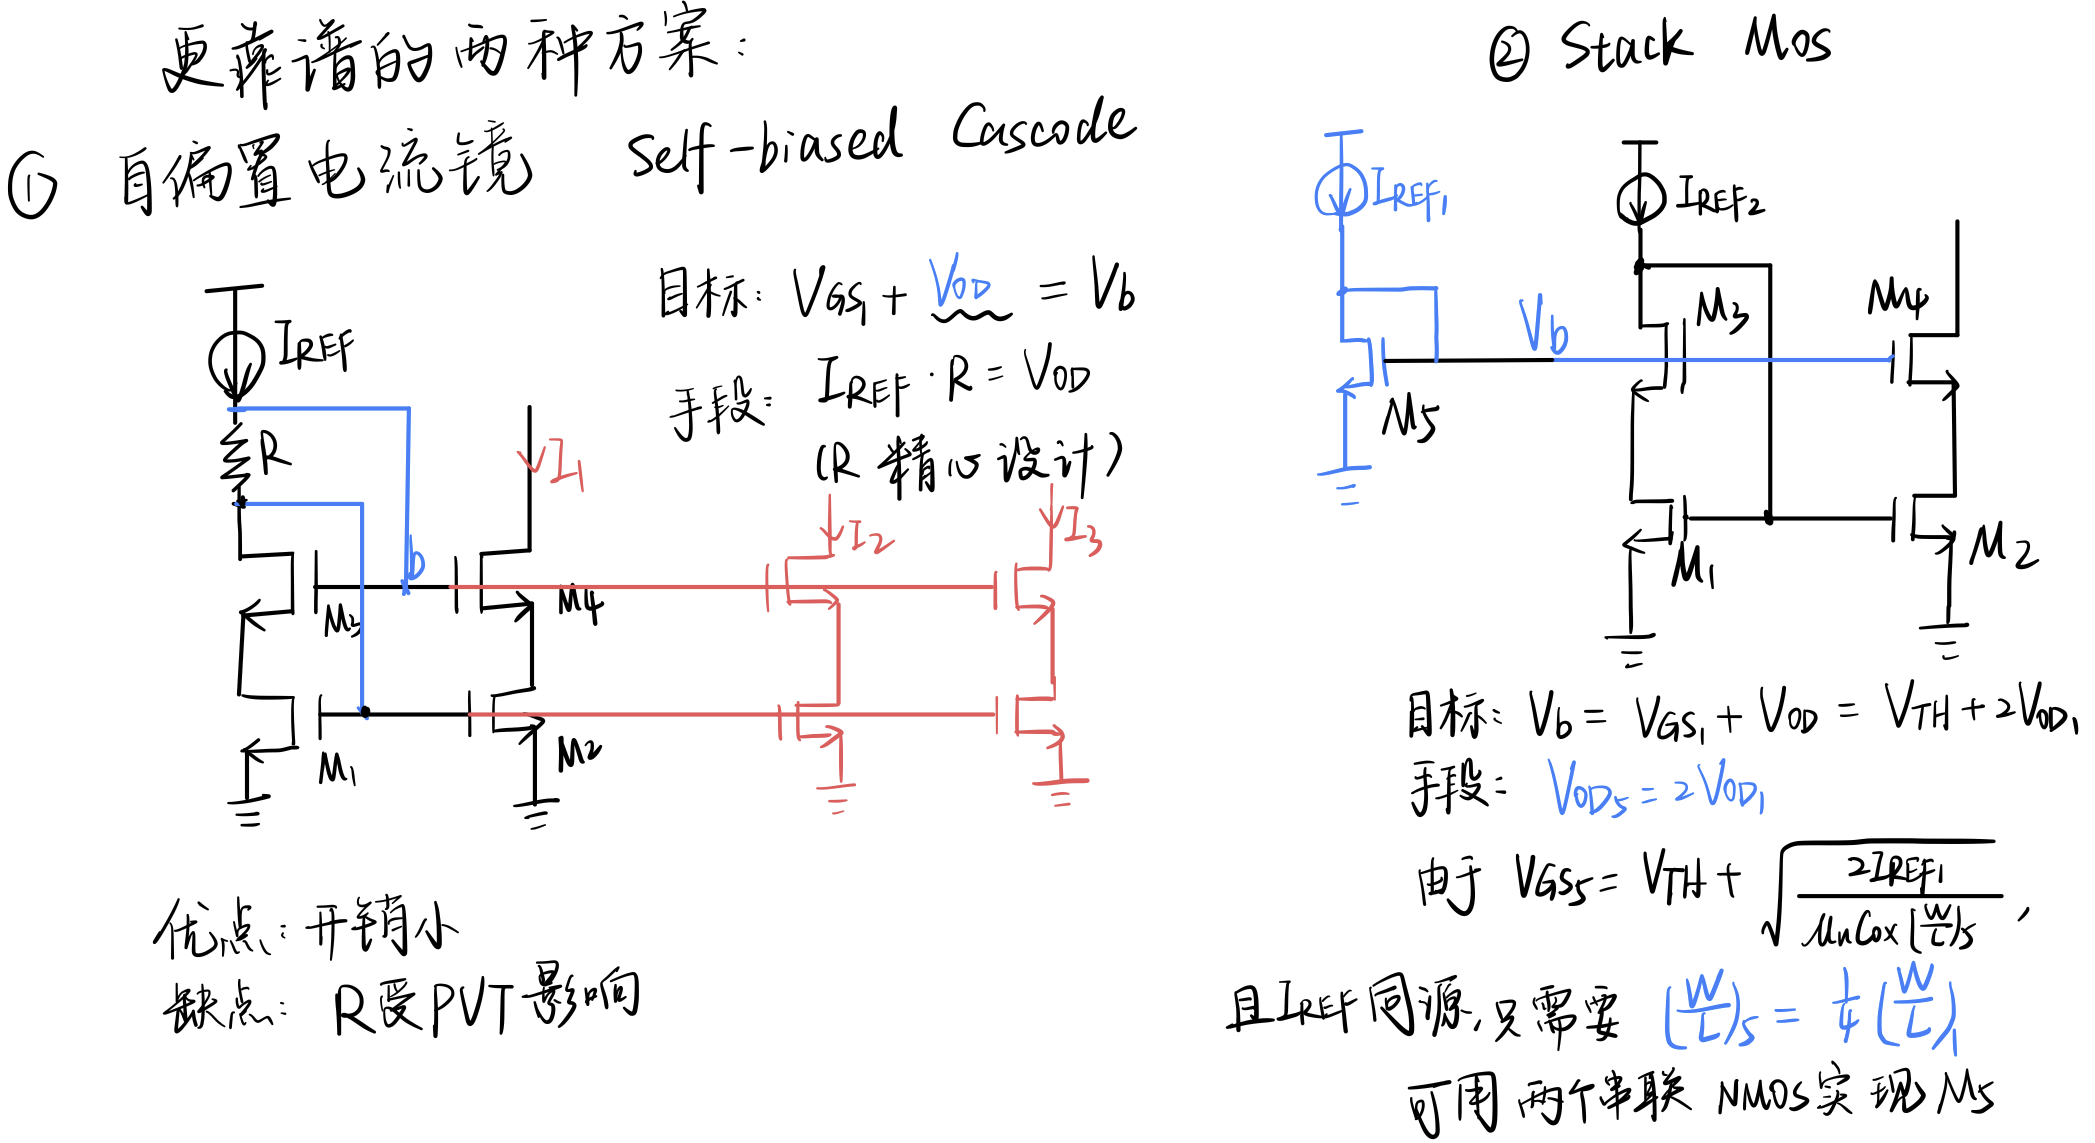 更靠谱的两种方案：
① 自偏置电流镜 Self-biased Cascode
目标：VGS1 + VOD = Vb
手段：IREF · R = VOD
（R 精心设计）
IREF
R
I1
b
M3
M4
M1
M2
I2
I3
优点：开销小
缺点：R受PVT影响
② Stack Mos
IREF1
IREF2
Vb
M3
M4
M5
M1
M2
目标：Vb = VGS1 + VOD = VTH + 2VOD1
手段：VOD5 = 2VOD1
由于 VGS5 = VTH + √(2IREF1 / μnCox(W/L)5)，
且IREF同源，只需要 (W/L)5 = 1/4 (W/L)1
可用两个串联 NMOS实现M5